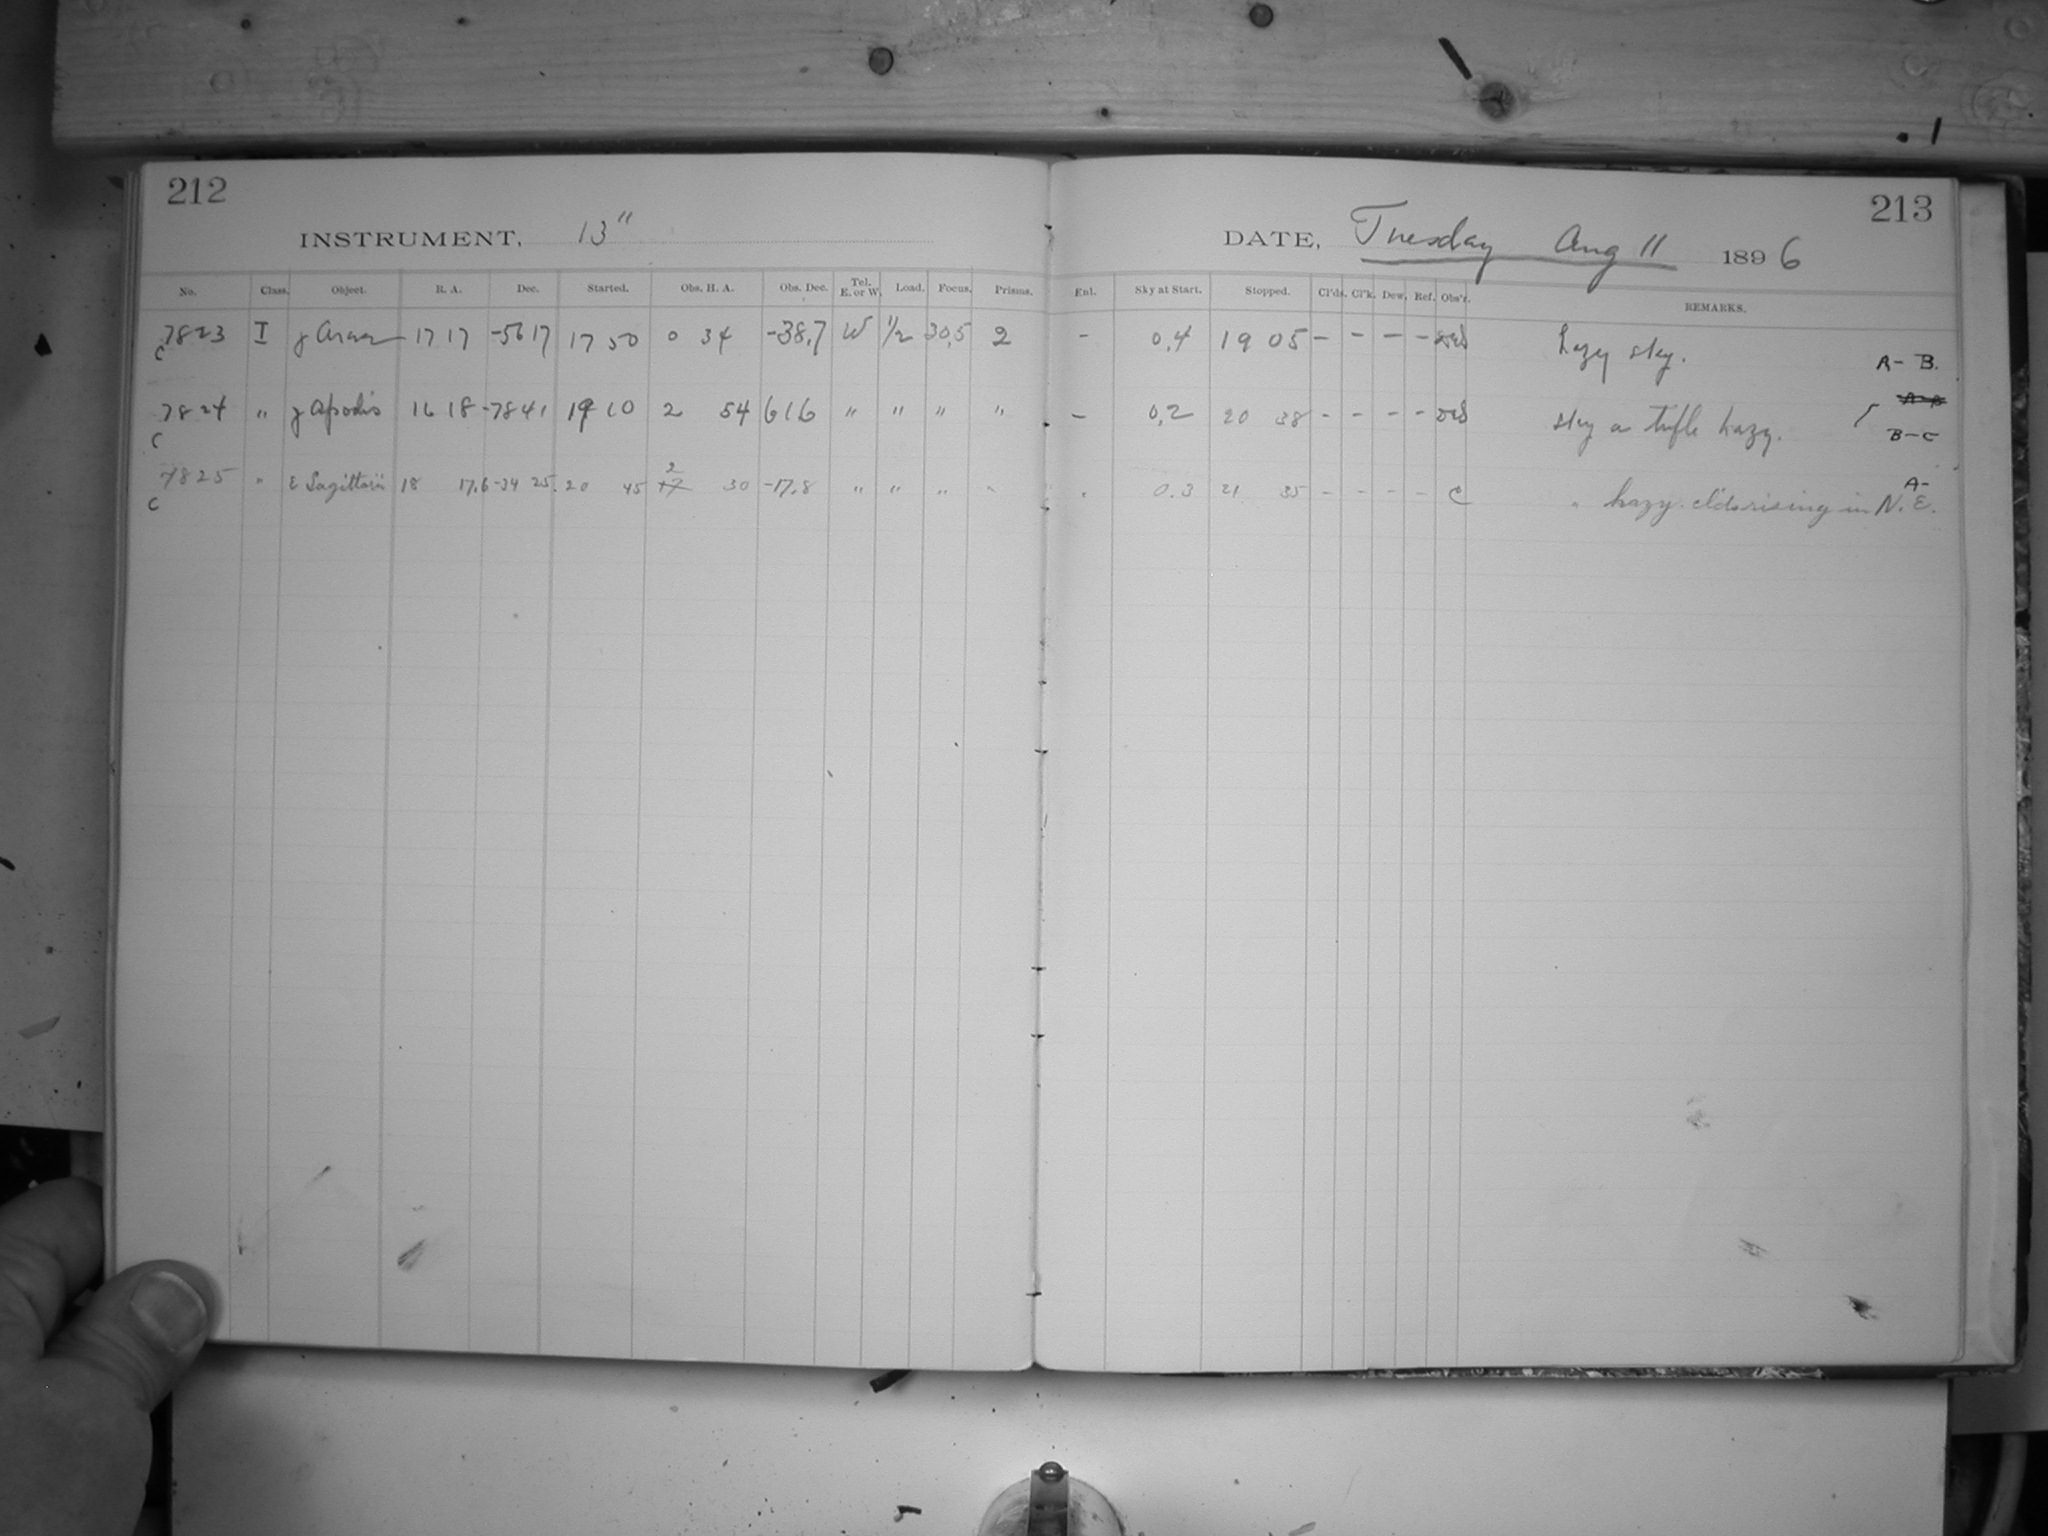 212
INSTRUMENT, 13"
No. Class. Object. R. A. Dec. Started. Obs. H. A. Obs. Dec. Tel. E. or W. Load. Focus. Prisms.
7823 I γ Arae 17 17 -56 17 17 50 0 34 -38,7 W 1/2 30,5 2
C
7824 " γ Apodis 16 18 -78 41 19 10 2 54 61,6 " " " "
C
7825 " ε Sagittarii 18 17,6 -34 25. 20 45 2 30 -17,8 " " " "
C
213
DATE, Tuesday Aug 11 1896
Enl. Sky at Start. Stopped. Cl'ds. Cl'k. Dew. Ref. Obs'r. REMARKS.
- 0,4 19 05 - - - - hazy sky. A- B.
- 0,2 20 38 - - - - sky a trifle hazy. B-C
" 0.3 21 35 - - - - C " hazy. clds rising in N.E. A-